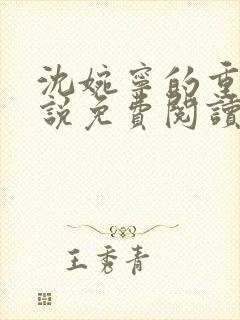 沈婉寧的重
說免費閱讀
王秀青